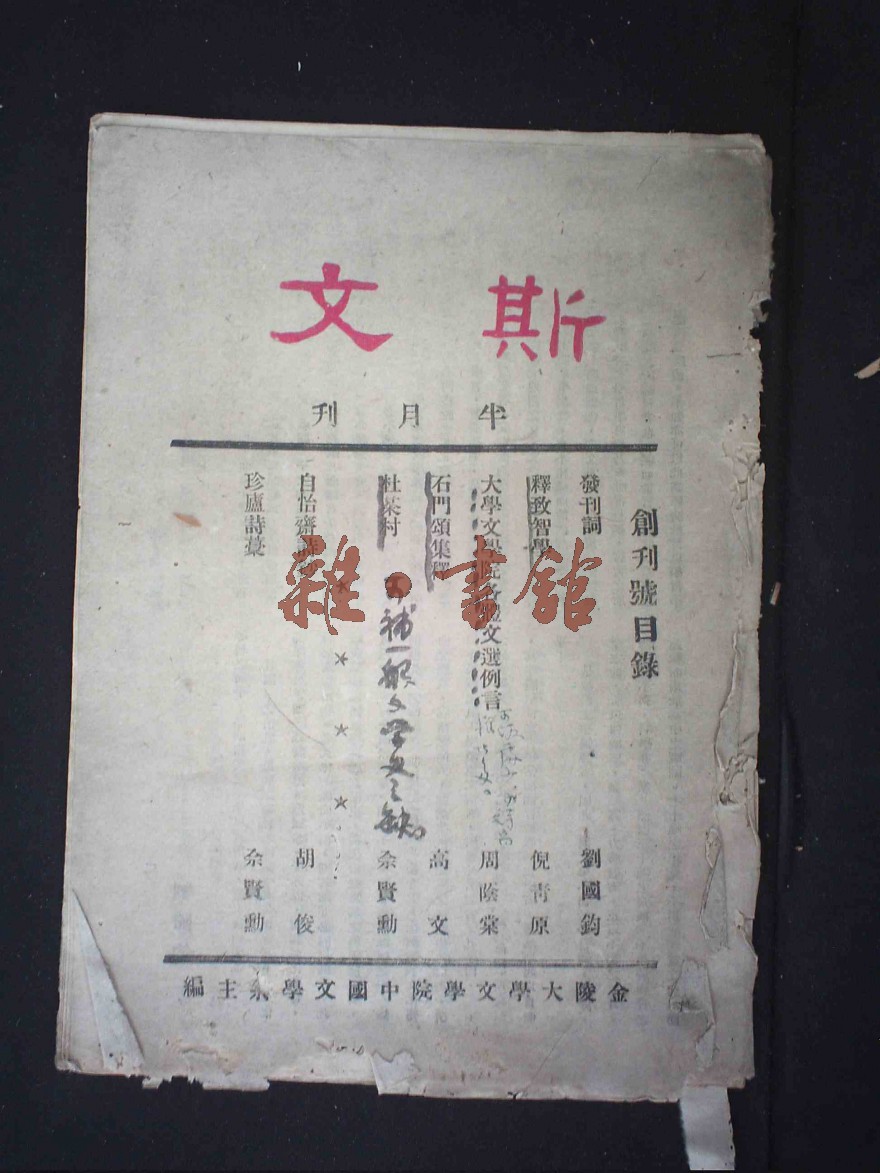 斯文
半月刊
創刊號目錄
發刊詞 劉國鈞
釋致智學 倪青原
大學文學院各體文選例言 周蔭棠
石門頌集釋 高文
杜茶村 余賢勳
补一般文学史之缺
自怡齋詩鈔 胡俊
珍廬詩藁 余賢勳
金陵大學文學院中國文學系主編
雜·書館